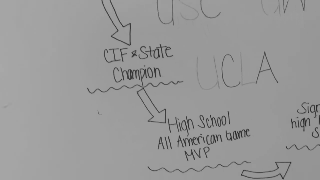 USC
CIF & State
Champion
UCLA
High School
All American Game
MVP
Sig
high
S